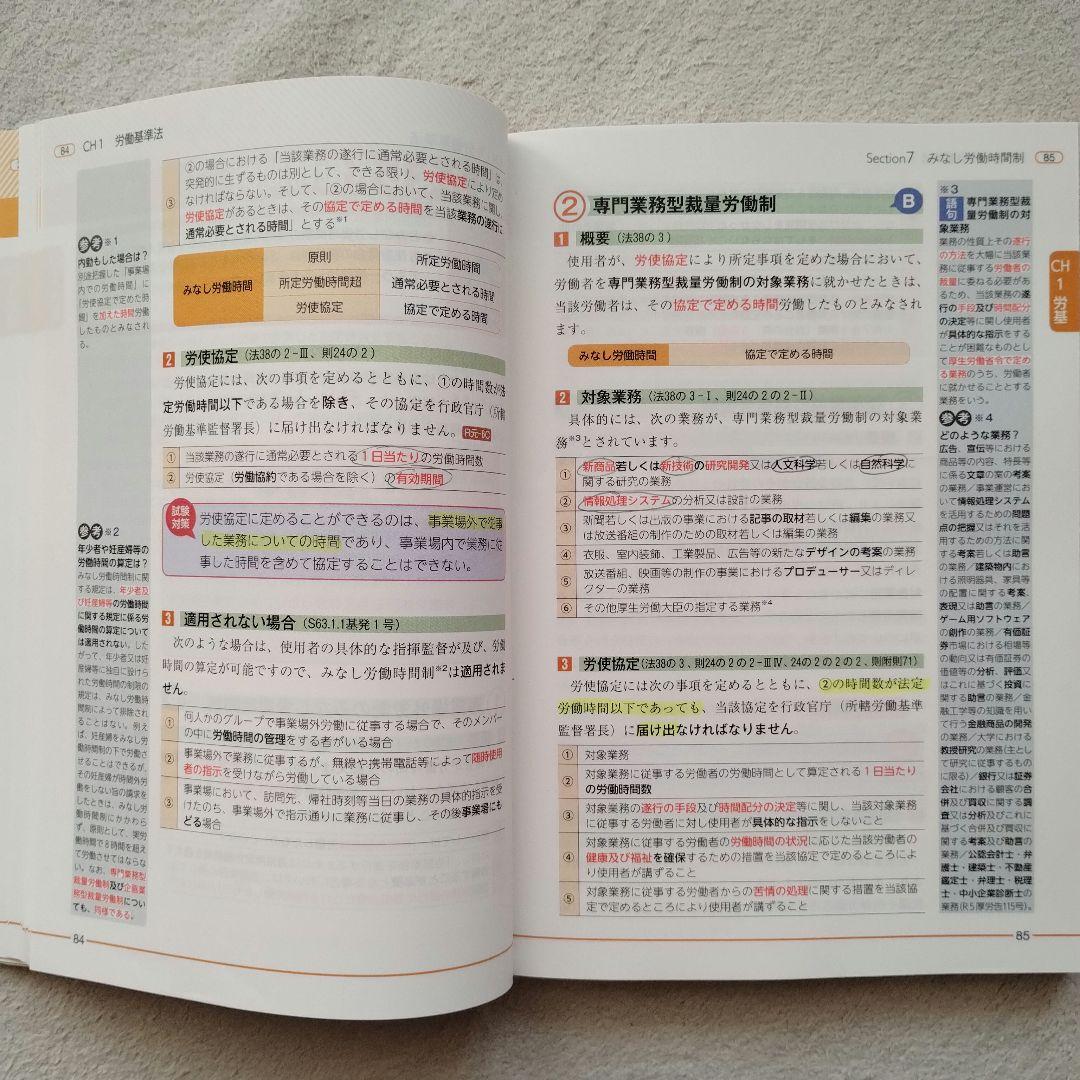 84 CH1 労働基準法
③ ②の場合における「当該業務の遂行に通常必要とされる時間」は、
突発的に生ずるものは別として、できる限り、労使協定により定め
なければならない。そして、「②の場合において、当該業務に関し、
労使協定があるときは、その協定で定める時間を当該業務の遂行に
通常必要とされる時間」とする※1
みなし労働時間
原則 所定労働時間
所定労働時間超 通常必要とされる時間
労使協定 協定で定める時間
2 労使協定(法38の2-Ⅲ、則24の2)
労使協定には、次の事項を定めるとともに、①の時間数が法
定労働時間以下である場合を除き、その協定を行政官庁(所轄
労働基準監督署長)に届け出なければなりません。R元-6C
① 当該業務の遂行に通常必要とされる1日当たりの労働時間数
② 労使協定(労働協約である場合を除く)の有効期間
試験
対策
労使協定に定めることができるのは、事業場外で従事
した業務についての時間であり、事業場内で業務に従
事した時間を含めて協定することはできない。
3 適用されない場合(S63.1.1基発1号)
次のような場合は、使用者の具体的な指揮監督が及び、労働
時間の算定が可能ですので、みなし労働時間制※2は適用されま
せん。
① 何人かのグループで事業場外労働に従事する場合で、そのメンバー
の中に労働時間の管理をする者がいる場合
② 事業場外で業務に従事するが、無線や携帯電話等によって随時使用
者の指示を受けながら労働している場合
③ 事業場において、訪問先、帰社時刻等当日の業務の具体的指示を受
けたのち、事業場外で指示通りに業務に従事し、その後事業場にも
どる場合
参考※1
内勤もした場合は?
別途把握した「事業場
内での労働時間」に
「労使協定で定めた時
間」を加えた時間労働
したものとみなされ
る。
参考※2
年少者や妊産婦等の
労働時間の算定は?
みなし労働時間制に関
する規定は、年少者及
び妊産婦等の労働時間
に関する規定に係る労
働時間の算定について
は適用されない。した
がって、年少者又は妊
産婦等に独自に設けら
れた労働時間の制限の
規定は、みなし労働時
間制によって排除され
ることはない。例え
ば、妊産婦をみなし労
働時間制の下で労働さ
せることはできるが、
その妊産婦が時間外労
働をしない旨の請求を
したときは、みなし労
働時間制にかかわら
ず、原則として、実労
働時間で8時間を超え
て労働させてはならな
い。なお、専門業務型
裁量労働制及び企画業
務型裁量労働制につい
ても、同様である。
84
Section7 みなし労働時間制 85
② 専門業務型裁量労働制 B
1 概要(法38の3)
使用者が、労使協定により所定事項を定めた場合において、
労働者を専門業務型裁量労働制の対象業務に就かせたときは、
当該労働者は、その協定で定める時間労働したものとみなされ
ます。
みなし労働時間 協定で定める時間
2 対象業務(法38の3-Ⅰ、則24の2の2-Ⅱ)
具体的には、次の業務が、専門業務型裁量労働制の対象業
務※3とされています。
① 新商品若しくは新技術の研究開発又は人文科学若しくは自然科学に
関する研究の業務
② 情報処理システムの分析又は設計の業務
③ 新聞若しくは出版の事業における記事の取材若しくは編集の業務又
は放送番組の制作のための取材若しくは編集の業務
④ 衣服、室内装飾、工業製品、広告等の新たなデザインの考案の業務
⑤ 放送番組、映画等の制作の事業におけるプロデューサー又はディレ
クターの業務
⑥ その他厚生労働大臣の指定する業務※4
3 労使協定(法38の3、則24の2の2-ⅢⅣ、24の2の2の2、則附則71)
労使協定には次の事項を定めるとともに、②の時間数が法定
労働時間以下であっても、当該協定を行政官庁(所轄労働基準
監督署長)に届け出なければなりません。
① 対象業務
② 対象業務に従事する労働者の労働時間として算定される1日当たり
の労働時間数
③ 対象業務の遂行の手段及び時間配分の決定等に関し、当該対象業務
に従事する労働者に対し使用者が具体的な指示をしないこと
④ 対象業務に従事する労働者の労働時間の状況に応じた当該労働者の
健康及び福祉を確保するための措置を当該協定で定めるところによ
り使用者が講ずること
⑤ 対象業務に従事する労働者からの苦情の処理に関する措置を当該協
定で定めるところにより使用者が講ずること
※3
語句 専門業務型裁
量労働制の対
象業務
業務の性質上その遂行
の方法を大幅に当該業
務に従事する労働者の
裁量に委ねる必要が
あるため、当該業務の遂
行の手段及び時間配分
の決定等に関し使用者
が具体的な指示をする
ことが困難なものとし
て厚生労働省令で定め
る業務のうち、労働者
に就かせることとする
業務をいう。
参考※4
どのような業務?
広告、宣伝等における
商品等の内容、特長等
に係る文章の案の考案
の業務/事業運営にお
いて情報処理システム
を活用するための問題
点の把握又はそれを活
用するための方法に関
する考案若しくは助言
の業務/建築物内にお
ける照明器具、家具等
の配置に関する考案、
表現又は助言の業務/
ゲーム用ソフトウェア
の創作の業務/有価証
券市場における相場等
の動向又は有価証券の
価値等の分析、評価又
はこれに基づく投資に
関する助言の業務/金
融工学等の知識を用い
て行う金融商品の開発
の業務/大学における
教授研究の業務(主とし
て研究に従事するもの
に限る)/銀行又は証券
会社における顧客の合
併及び買収に関する調
査又は分析及びこれに
基づく合併及び買収に
関する考案及び助言の
業務/公認会計士・弁
護士・建築士・不動産
鑑定士・弁理士・税理
士・中小企業診断士の
業務(R5厚労告115号)。
CH
1
労基
85